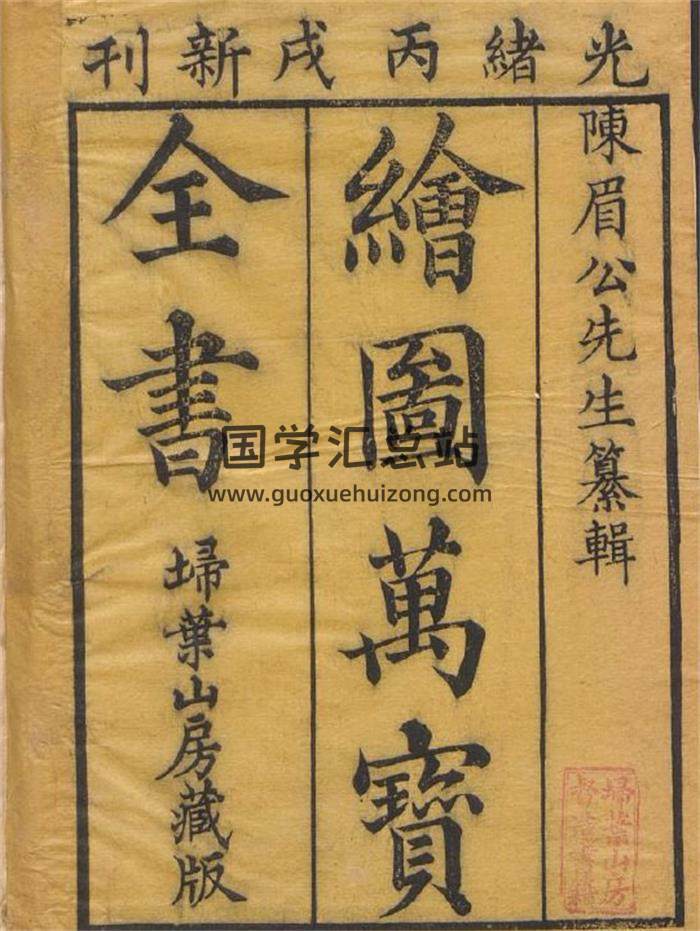 光緒丙戌新刊
陳眉公先生纂輯
繪圖萬寶
全書
埽葉山房藏版
国学汇总站
www.guoxuehuizong.com
埽葉山房
督造書籍